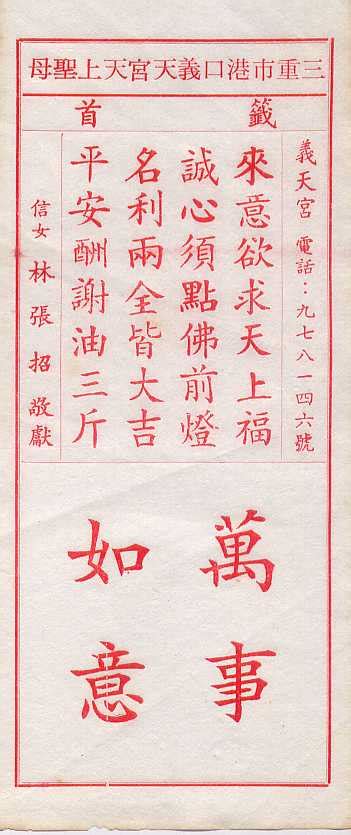 三重市港口義天宮天上聖母
籤首
義天宮 電話：九七八一四六號
來意欲求天上福
誠心須點佛前燈
名利兩全皆大吉
平安酬謝油三斤
信女 林張招 敬獻
萬事
如意